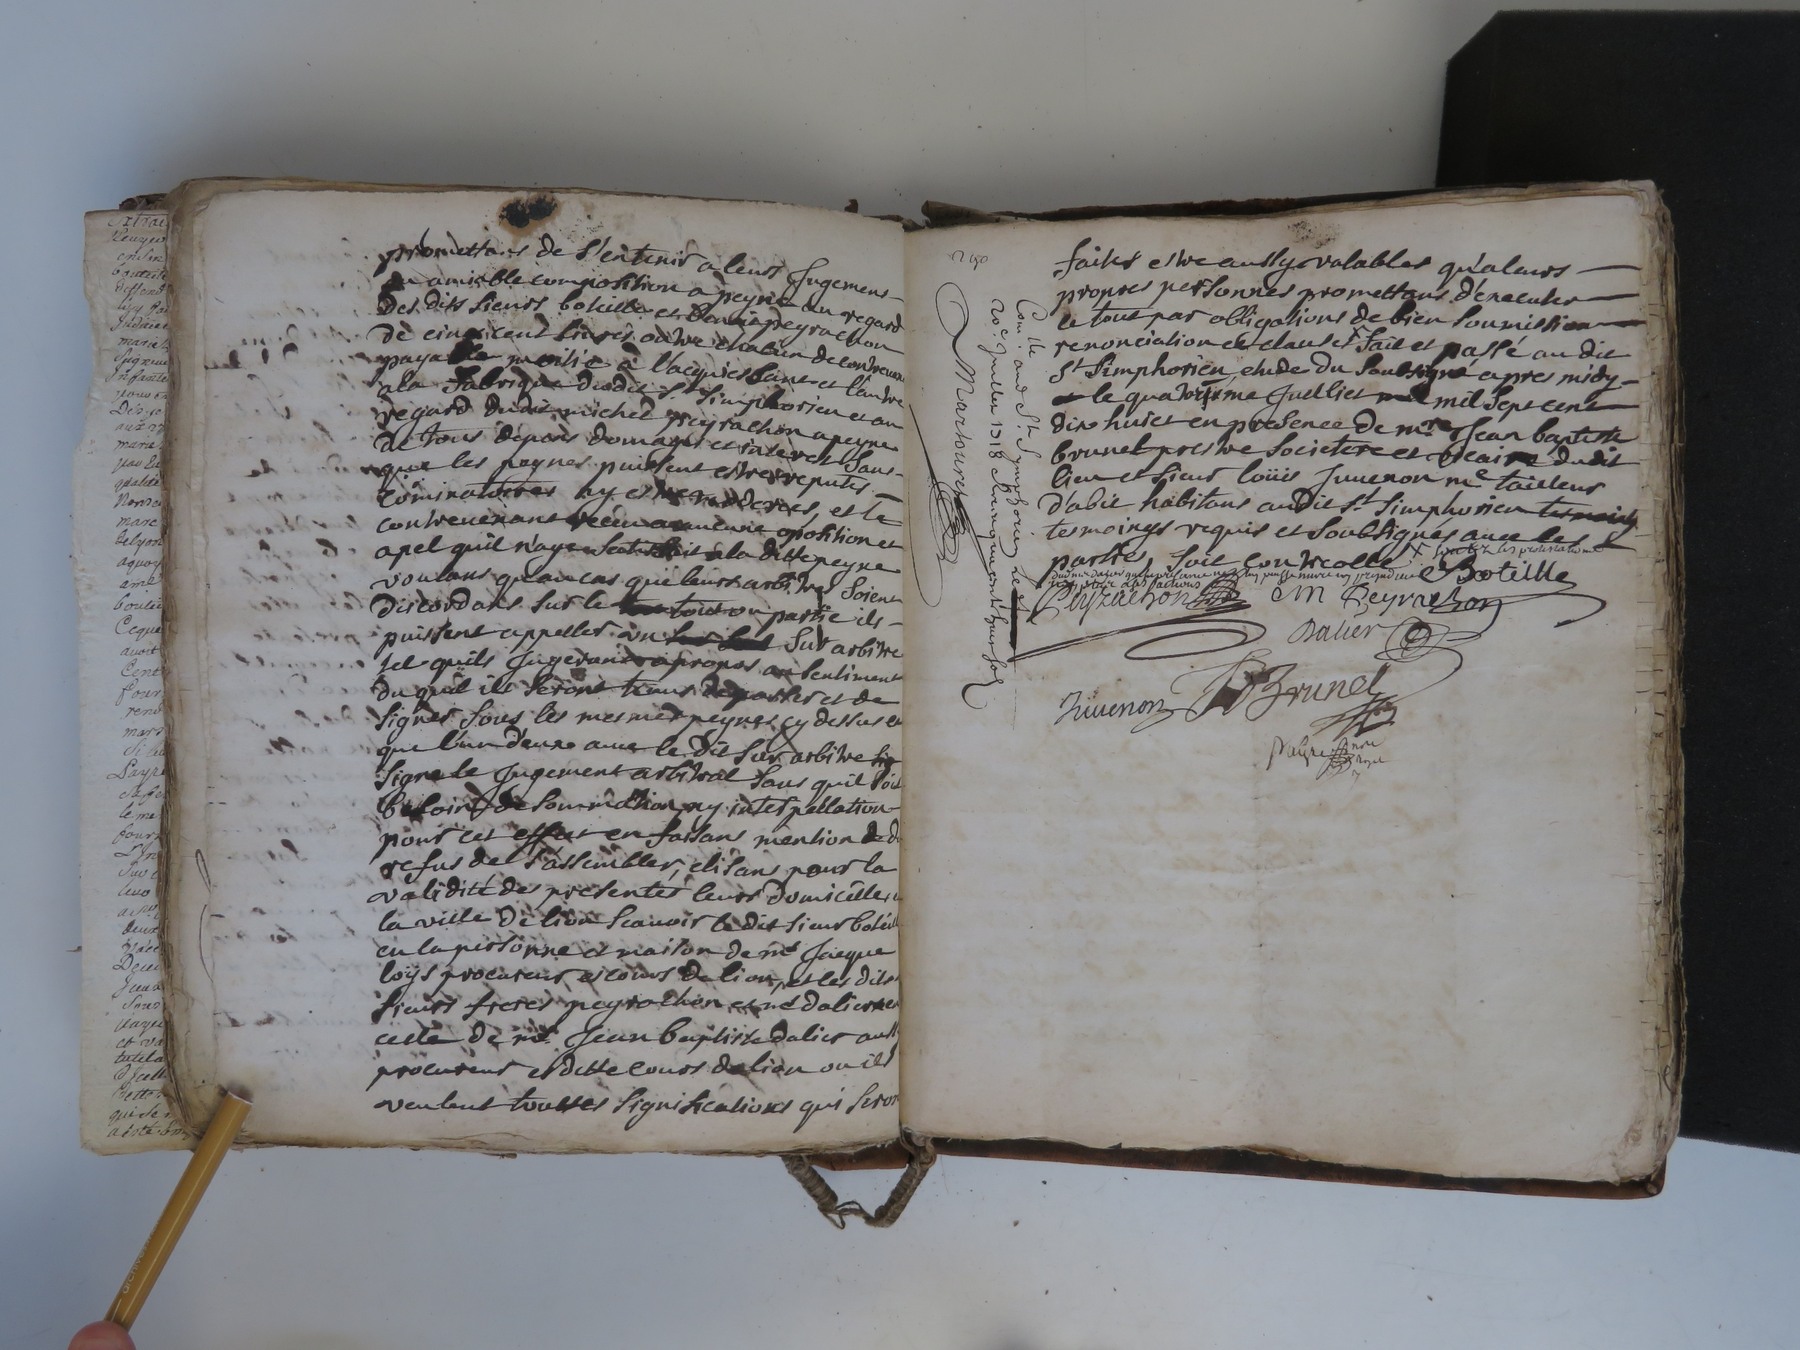 promettans de s'entenir a leurs Jugemens
en amiable composition a peyne au regard
Des dits sieurs botille et Denis peyrachon
De cinq cent livres outre chacun de contreven
payable moitié à l'acquiesçant et l'autre
a la fabrique dudit St Simphorien et au
regard dudit michel peyrachon a peyne
De tous depans domages et interet sans
que les peynes puissent estre reputés
cominatoires ny estre moderées, et le
contrevenant receu a aucune oposition et
apel qu'il n'aye satisfait a la ditte peyne
voulans qu'au cas que leurs arbitres soient
discordans sur le tout ou partie ils
puissent appeller un sur arbitre
tel quils Jugeront a propos au sentiment
du quel ils seront tenus de passer et de
signer sous les mesmes peynes cy dessus et
que l'un d'eux avec le dit sur arbitre
signe le Jugement arbitral sans quil soit
besoin de sommation ny interpellation
pour cet effect en faisans mention de du
refus de s'assembler, elisans pour la
validité des presentes leurs domicilles
la ville de lion scavoir le dit sieur botille
en la personne et maison de me Jacque
loys procureur es cours de lion, et les dits
sieurs freres peyrachon et me dalier en
celle de me Jean baptiste dalier aussy
procureur es ditte cours de lion ou ils
veulent touttes significations qui seron
290
faites estre aussy valables qu'a leurs
propres personnes promettans d'executer
le tout par obligations de bien soumission
renonciation et clauses fait et passé au dit
St Simphorien, etude du soubsigné apres midy
le quatorzieme Juilliet mil sept cent
dix huict en presence de mre Jean baptiste
brunet prestre Societere et vicaire dudit
lieu et sieur loüis Juvenon me tailleur
d'abit habitans audit St Simphorien
tesmoings requis et soubsignes avec les
parties, soit controllé
Botille
Peyrachon
M Peyrachon
Dalier
Juvenon
JB Brunet
Com. and St Symphorien le
20e Juillet 1718